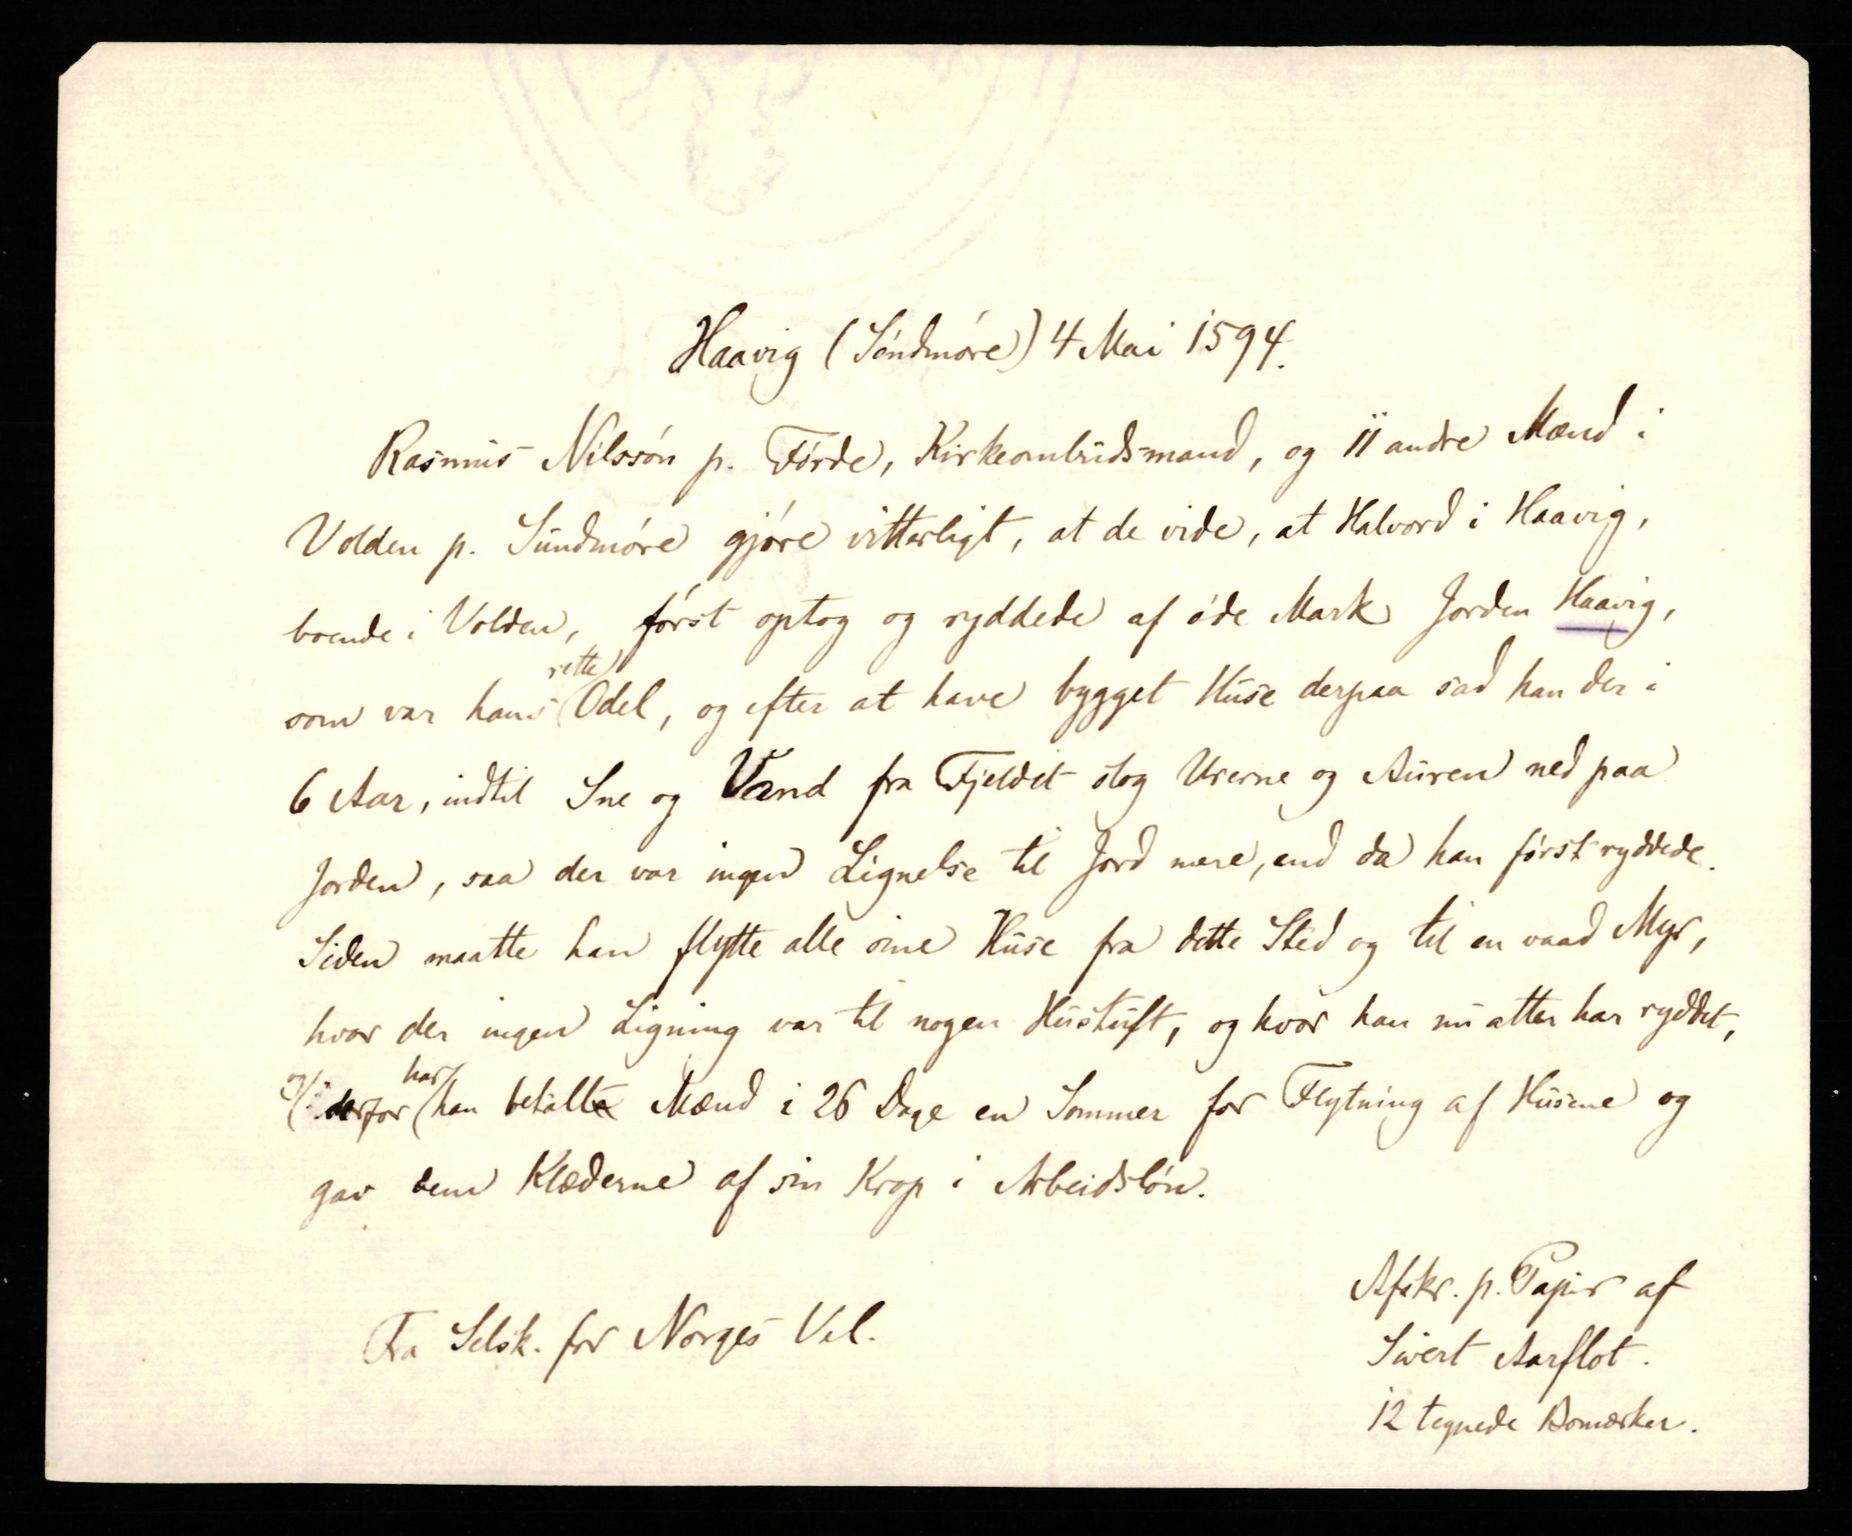 Haavig (Söndmöre) 4 Mai 1594.
Rasmus Nilssön p. Förde, Kirkeombudsmand, og 11 andre Mænd i
Volden p. Sundmöre gjöre vitterligt, at de vide, at Halvord i Haavig,
boende i Volden, först optog og ryddede af öde Mark Jorden Haavig,
som var hans rette Odel, og efter at have bygget Huse derpaa sad han der i
6 Aar, indtil Sne og Vand fra Fjeldet slog Urerne og Auren ned paa
Jorden, saa der var ingen Lignelse til Jord mere, end da han först ryddede.
Siden maatte han flytte alle sine Huse fra dette Sted og til en vaad Myr,
hvor der ingen Ligning var til nogen Hustuft, og hvor han nu atter har ryddet,
og derfor har han betalt Mænd i 26 Dage en Sommer for Flytning af Husene og
gav dem Klæderne af sin Krop i Arbeidslön.
Afskr. p. Papir af
Fra Selsk. for Norges Vel.
Sivert Aarflot.
12 tegnede Bomærker.